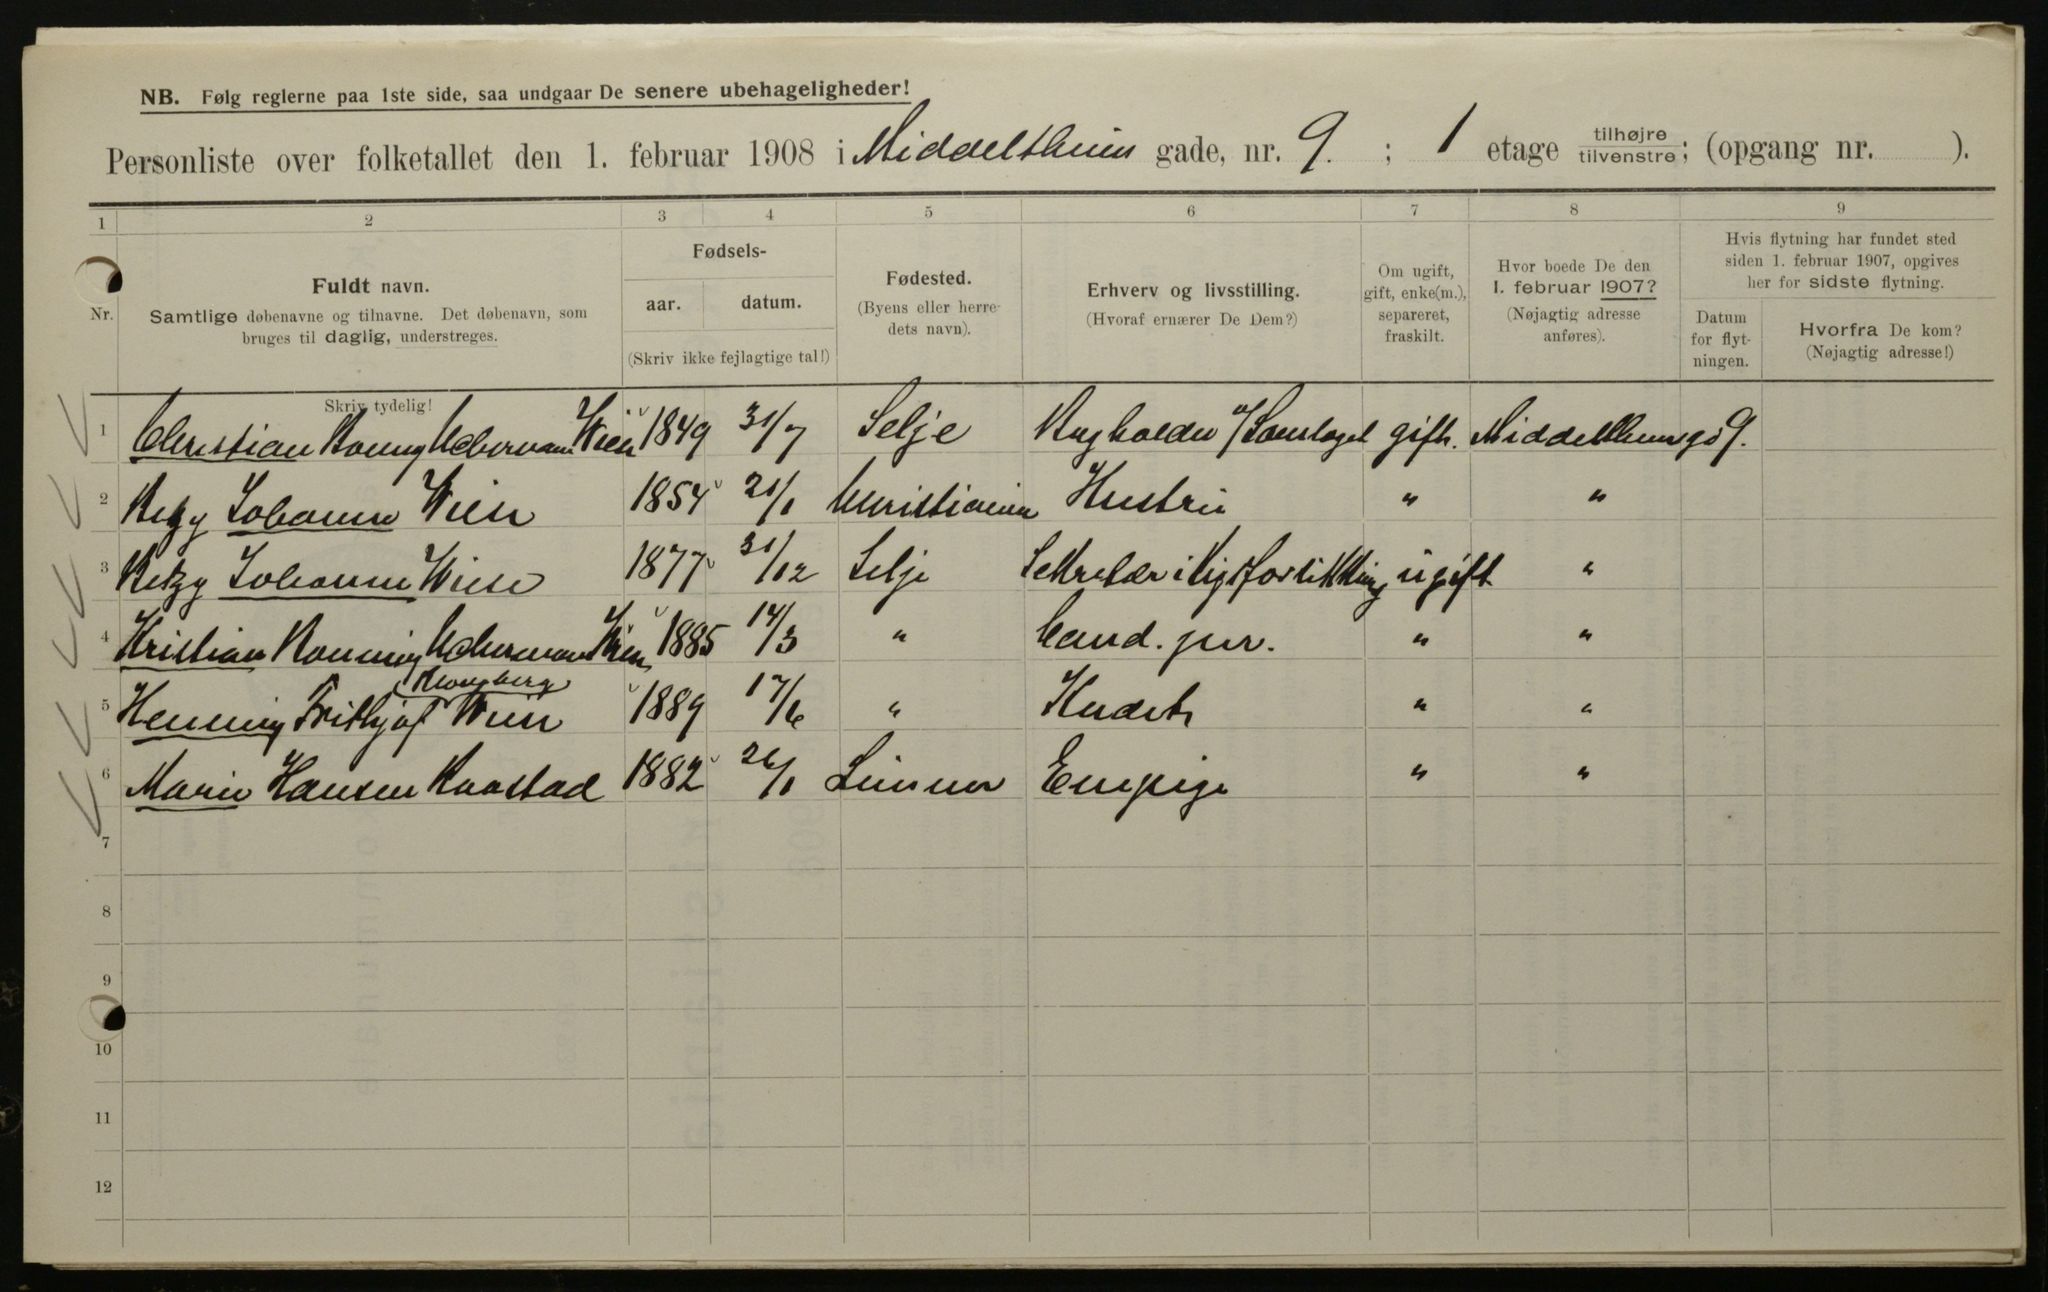 NB. Følg reglerne paa 1ste side, saa undgaar De senere ubehageligheder!
Personliste over folketallet den 1. februar 1908 i Middelthuns gade, nr. 9. ; 1 etage tilhøjre tilvenstre; (opgang nr. ).
1 2 3 4 5 6 7 8 9
Nr.
Fuldt navn.
Samtlige døbenavne og tilnavne. Det døbenavn, som
bruges til daglig, understreges.
Skriv tydelig!
Fødsels-
aar. datum.
(Skriv ikke fejlagtige tal!)
Fødested.
(Byens eller herre-
dets navn).
Erhverv og livsstilling.
(Hvoraf ernærer De Dem?)
Om ugift,
gift, enke(m.),
separeret,
fraskilt.
Hvor boede De den
1. februar 1907?
(Nøjagtig adresse
anføres).
Hvis flytning har fundet sted
siden 1. februar 1907, opgives
her for sidste flytning.
Datum
for flyt-
ningen.
Hvorfra De kom?
(Nøjagtig adresse!)
1 Christian Wiese 1849 31/7 Selje gift. Middelthunsgd 9.
2 Betzy Johanne Wiese 1854 21/1 Christiania Hustru " "
3 Betzy Johanne Wiese 1877 31/12 Selje Sekretær i ugift "
4 Kristian Wiese 1885 14/3 " Cand. jur. " "
5 Henning Frithjof Wiese 1889 17/6 " Kadet " "
6 Marie Hansen Raastad 1882 26/1 Lunner Enepige " "
7
8
9
10
11
12